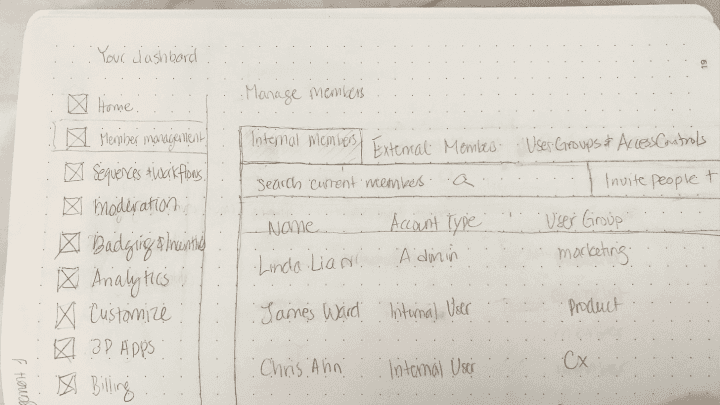 Your dashbard
Home
Member management
Sequences + Workflows
Moderation
Badging &
Analytics
Customize
3P APPS
Billing
Manage members
Internal members
External Members
User Groups & Access Controls
Search current members
Invite people +
Name
Account Type
User Group
Linda
Admin
marketing
James Ward
Internal User
Product
Chris Ahn
Internal User
Cx
19